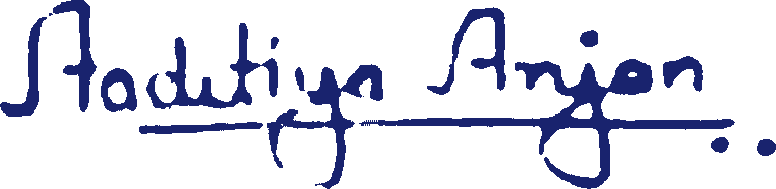 Aaditiya Anjan